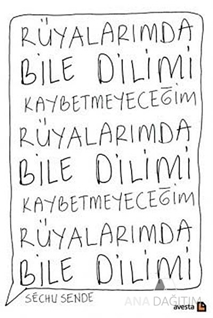 RÜYALARIMDA
BİLE DİLİMİ
KAYBETMEYECEĞİM
RÜYALARIMDA
BİLE DİLİMİ
KAYBETMEYECEĞİM
RÜYALARIMDA
BİLE DİLİMİ
SÉCHU SENDE
ANA DAĞITIM
avesta